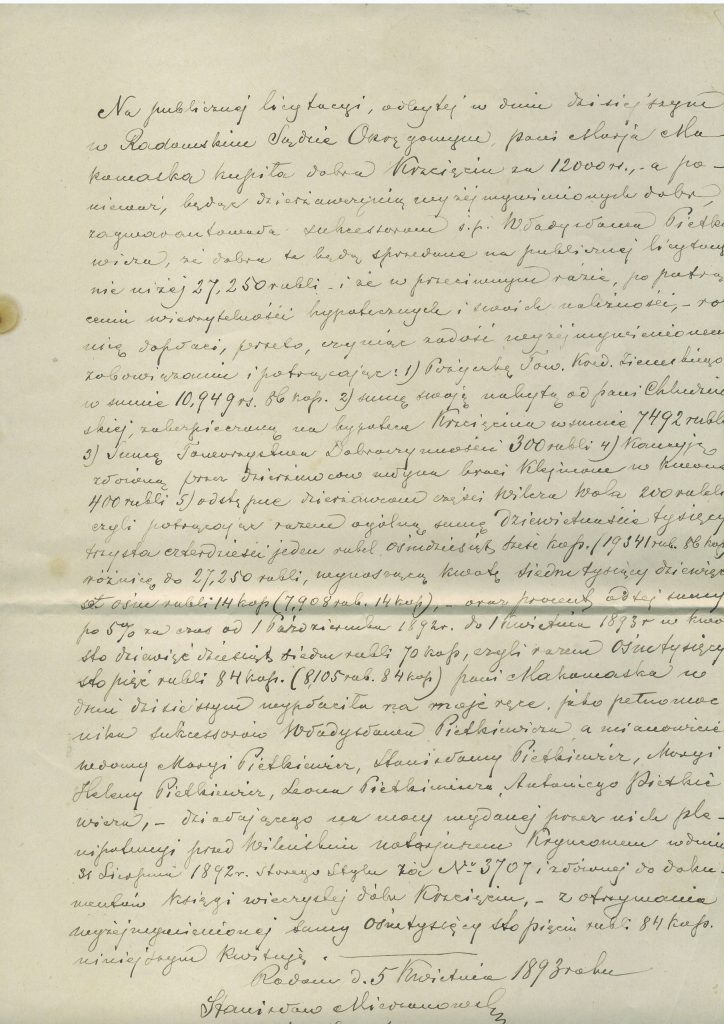 Na publicznej licytacyi, odbytej w dniu dzisiejszym
w Radomskim Sądzie Okręgowym, pani Marja Ma-
komaska kupiła dobra Krzcięcin za 12000 rs., - a po-
nieważ, będąc dzierżawczynią wyżej wymienionych dóbr,
zagwarantowała sukcessorom ś.p. Władysława Pietkie
wicza, że dobra te będą sprzedane na publicznej licytacyi
nie niżej 27,250 rubli - i że w przeciwnym razie, po potrą-
ceniu wierzytelności hypotecznych i swoich należności, - ró
nicę dopłaci, przeto, czyniąc zadość wyżej wymienionem
zobowiązaniu i potrącając: 1) Pożyczkę Tow. Kred. Ziemskiego
w sumie 10,949 rs. 86 kop. 2) sumę swoją nabytą od pani Chludziń
skiej, zabezpieczoną na hypotece Krzcięcina w sumie 7492 rubli
3) Sumę Towarzystwa Dobroczynności 300 rubli 4) Kaucyją
złożoną przez dzierżawców młyna braci Klejman w kwocie
400 rubli 5) odstępne dzierżawcom części Wilcza Wola 200 rubli
czyli potrącając razem ogólną sumę dziewiętnaście tysięcy
trzysta czterdzieści jeden rubel ośmdziesiąt sześć kop. (19341 rub. 86 kop
różnicę do 27,250 rubli, wynoszącą kwotę siedm tysięcy dziewięć
set ośm rubli 14 kop (7,908 rub. 14 kop), - oraz procent od tej sumy
po 5% za czas od 1 Października 1892 r. do 1 Kwietnia 1893 r w kwo
sto dziewięćdziesiąt siedm rubli 70 kop, czyli razem ośm tysięcy
sto pięć rubli 84 kop. (8105 rub. 84 kop) pani Makomaska w
dniu dzisiejszym wypłaciła na moje ręce, jako pełnomoc
nika sukcessorów Władysława Pietkiewicza a mianowicie
wdowy Maryi Pietkiewicz, Stanisławy Pietkiewicz, Maryi
Heleny Pietkiewicz, Leona Pietkiewicza, Antoniego Pietkie
wicza, - działającego na mocy wydanej przez nich ple-
nipotencyi przed Wileńskim notarjuszem w dniu
31 Sierpnia 1892 r. starego stylu za No 3707 i złożonej do doku-
mentów księgi wieczystej dóbr Krzcięcin, - z otrzymania
wyżej wymienionej sumy ośm tysięcy sto pięciu rubli 84 kop.
niniejszym kwituję.
Radom d. 5 Kwietnia 1893 roku
Stanisław